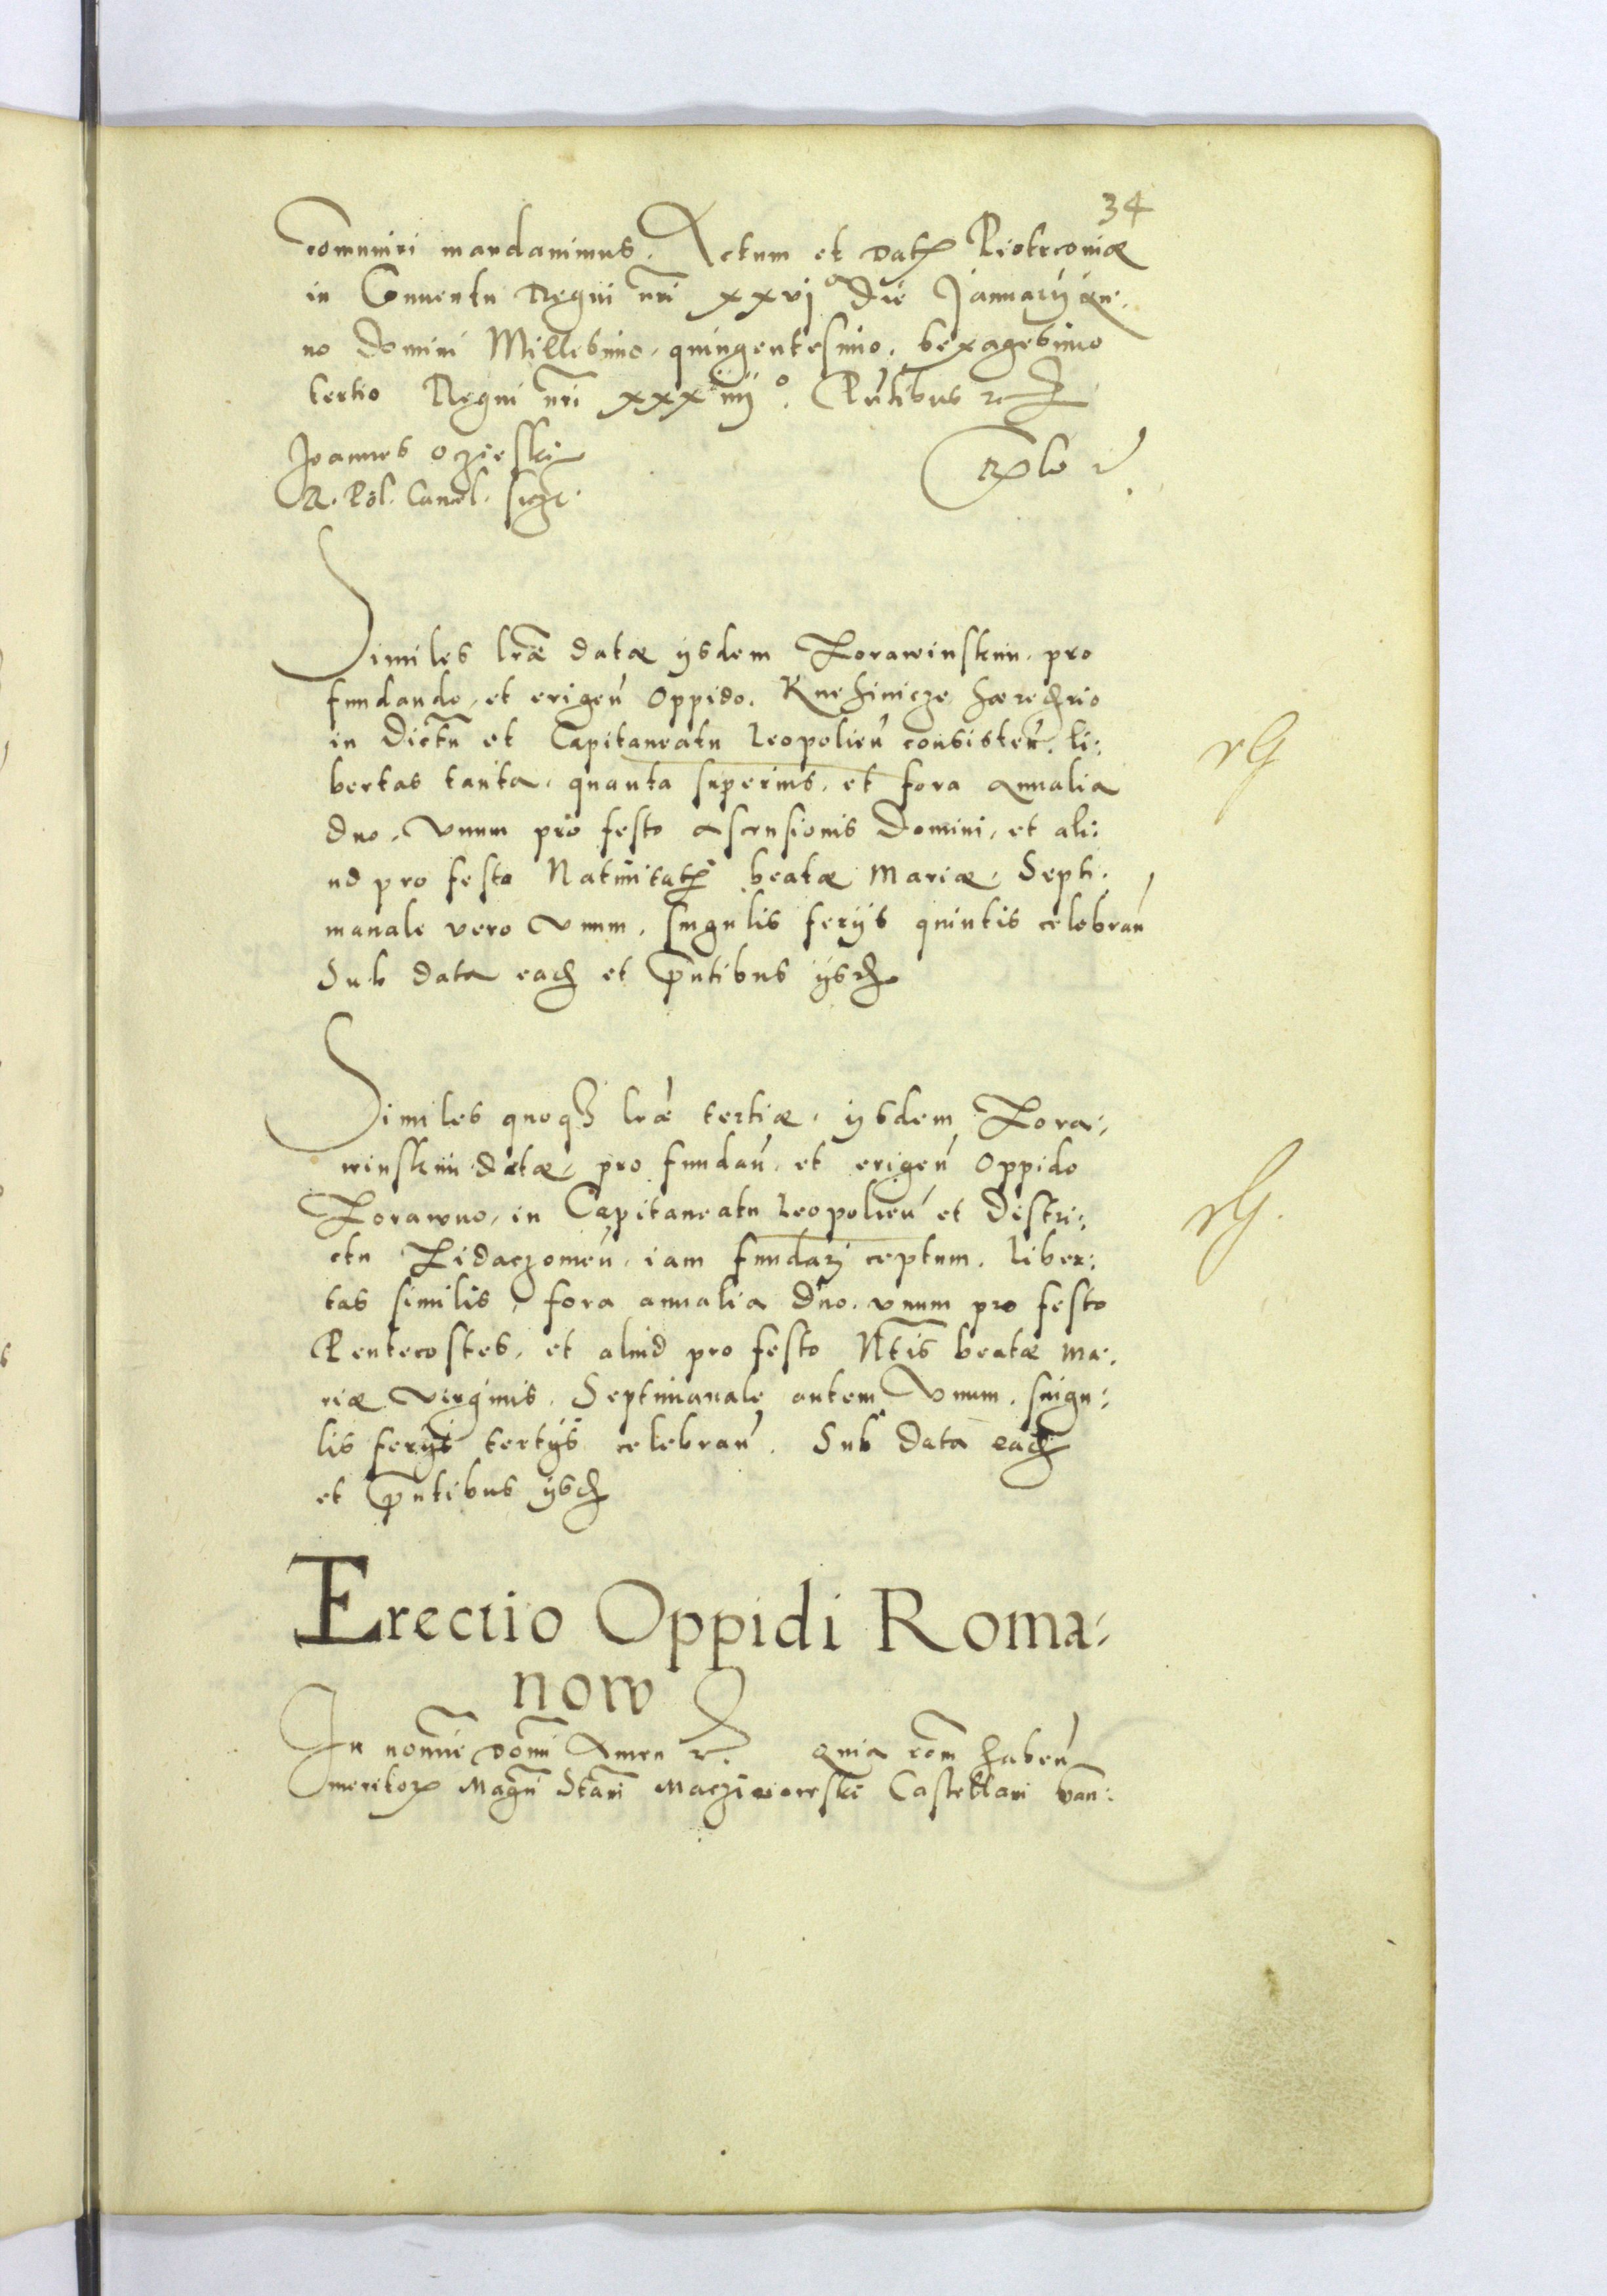 34
communiri mandavimus. Actum et Datꝫ Piotrcoviæ
in Conventu Regni nri xxvja die Januarij an-
no Domini Millesimo, quingentesimo, sexagesimo
tertio Regni nri xxxiiijo. Pntibus
Joannes Oczieski
R. Pol. Cancel. sigr.
Similes lræ datæ ijsdem Zorawinskim, pro
fundando, et erigen̄ oppido, Knehinicze hæredrio
in dictu et Capitaneatu Leopolien̄ consisten̄. li:
bertas tanta, quanta superius, et fora annalia
duo, Vnum pro festo Ascensionis Domini, et ali:
ud pro festo Nativitatꝫ beatæ Mariæ, Septi-
manale vero Vnum, singulis ferijs quintis celebran̄
Sub data ead et pntibus ijsd
Similes quoqꝫ lræ tertiæ, ijsdem Zora:
winskim datæ, pro fundan̄, et erigen̄ oppido
Zorawno, in Capitaneatu Leopolien̄ et Distri:
ctu Zidaczowien̄, iam fundari ceptum. liber:
tas similis, fora annalia duo. vnum pro festo
Pentecostes, et aliud pro festo Ntis beatæ Ma-
riæ Virginis. Septimanale autem Vnum, singu:
lis ferijs tertijs celebran̄. Sub data ead
et pntibus ijsd
Erectio Oppidi Roma:
now
In nomine Domi Amen quia rom haben̄
meritor Magci Stani Maczieiowski Castellani